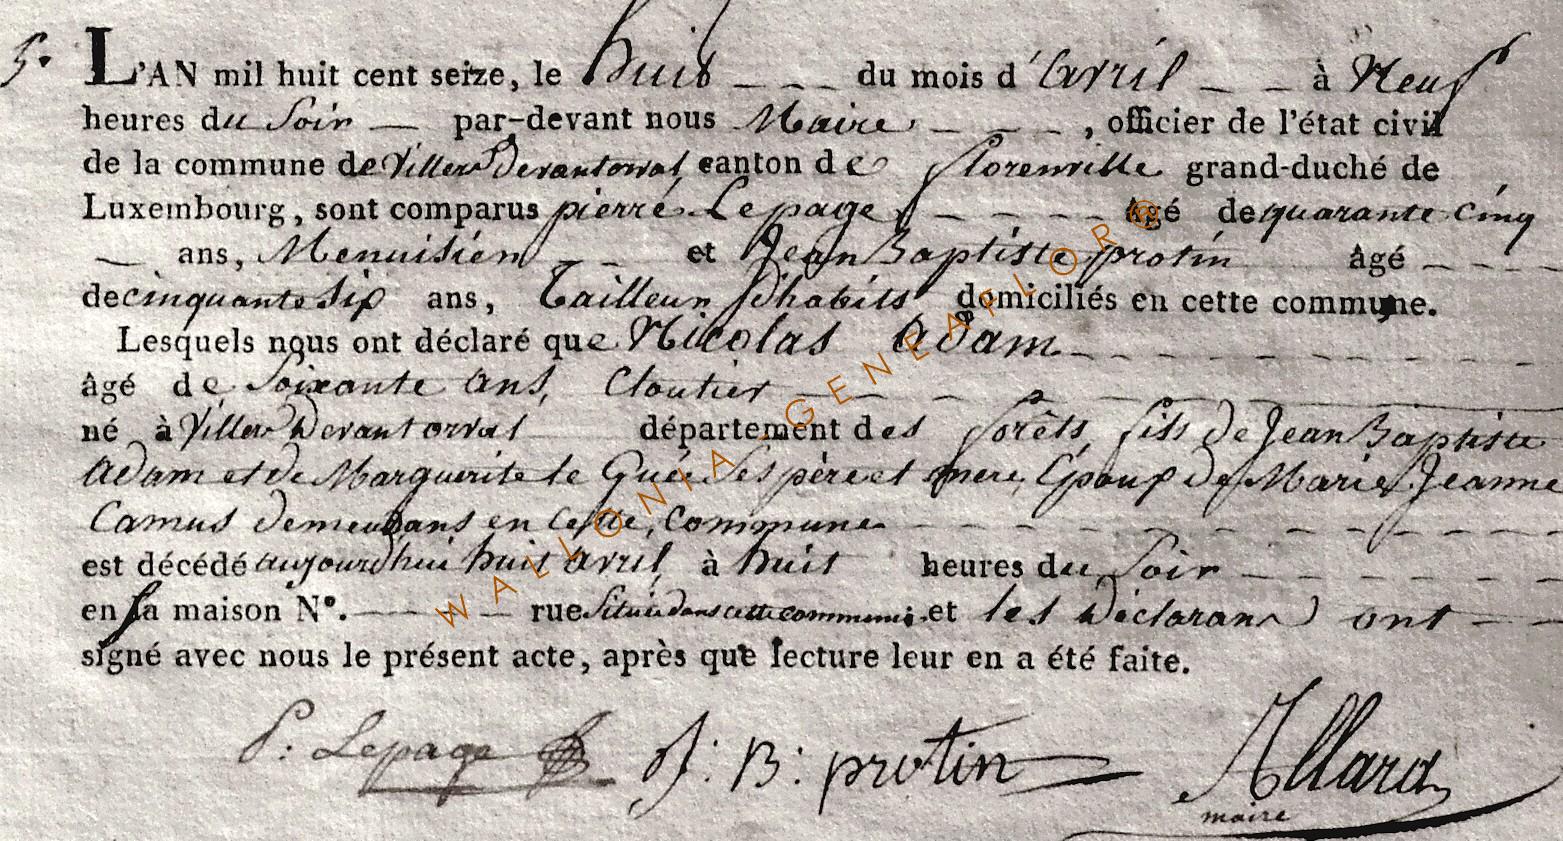 5.
L'AN mil huit cent seize, le huit - - - du mois d'avril - - à Neuf
heures du Soir — par-devant nous Maire - - - , officier de l'état civil
de la commune de Villers Devantorval, canton de florenville grand-duché de
Luxembourg, sont comparus pierre Lepage - - - - âgé de quarante cinq
— ans, Menuisien - - et Jean Baptiste protin âgé - - - -
de cinquante Six ans, Tailleur d'habits domiciliés en cette commune.
Lesquels nous ont déclaré que Nicolas Adam - - - - - - -
âgé de Soixante ans, Cloutier - - - - - - - -
né à Villers Devantorval département des forêts, fils de Jean Baptiste
Adam et de Marguerite le Guée Ses père et mere, Epoux de Marie Jeanne
Camus demeurans en Cette Commune - - - - - - -
est décédé aujourd'hui huit avril, à huit heures du Soir - - - -
en sa maison N°. — - — rue Située dans cette commune et les Déclarans ont - -
signé avec nous le présent acte, après que lecture leur en a été faite.
P: Lepage J: B: protin Allard
maire
WALLONIA-GENEAFLOR@